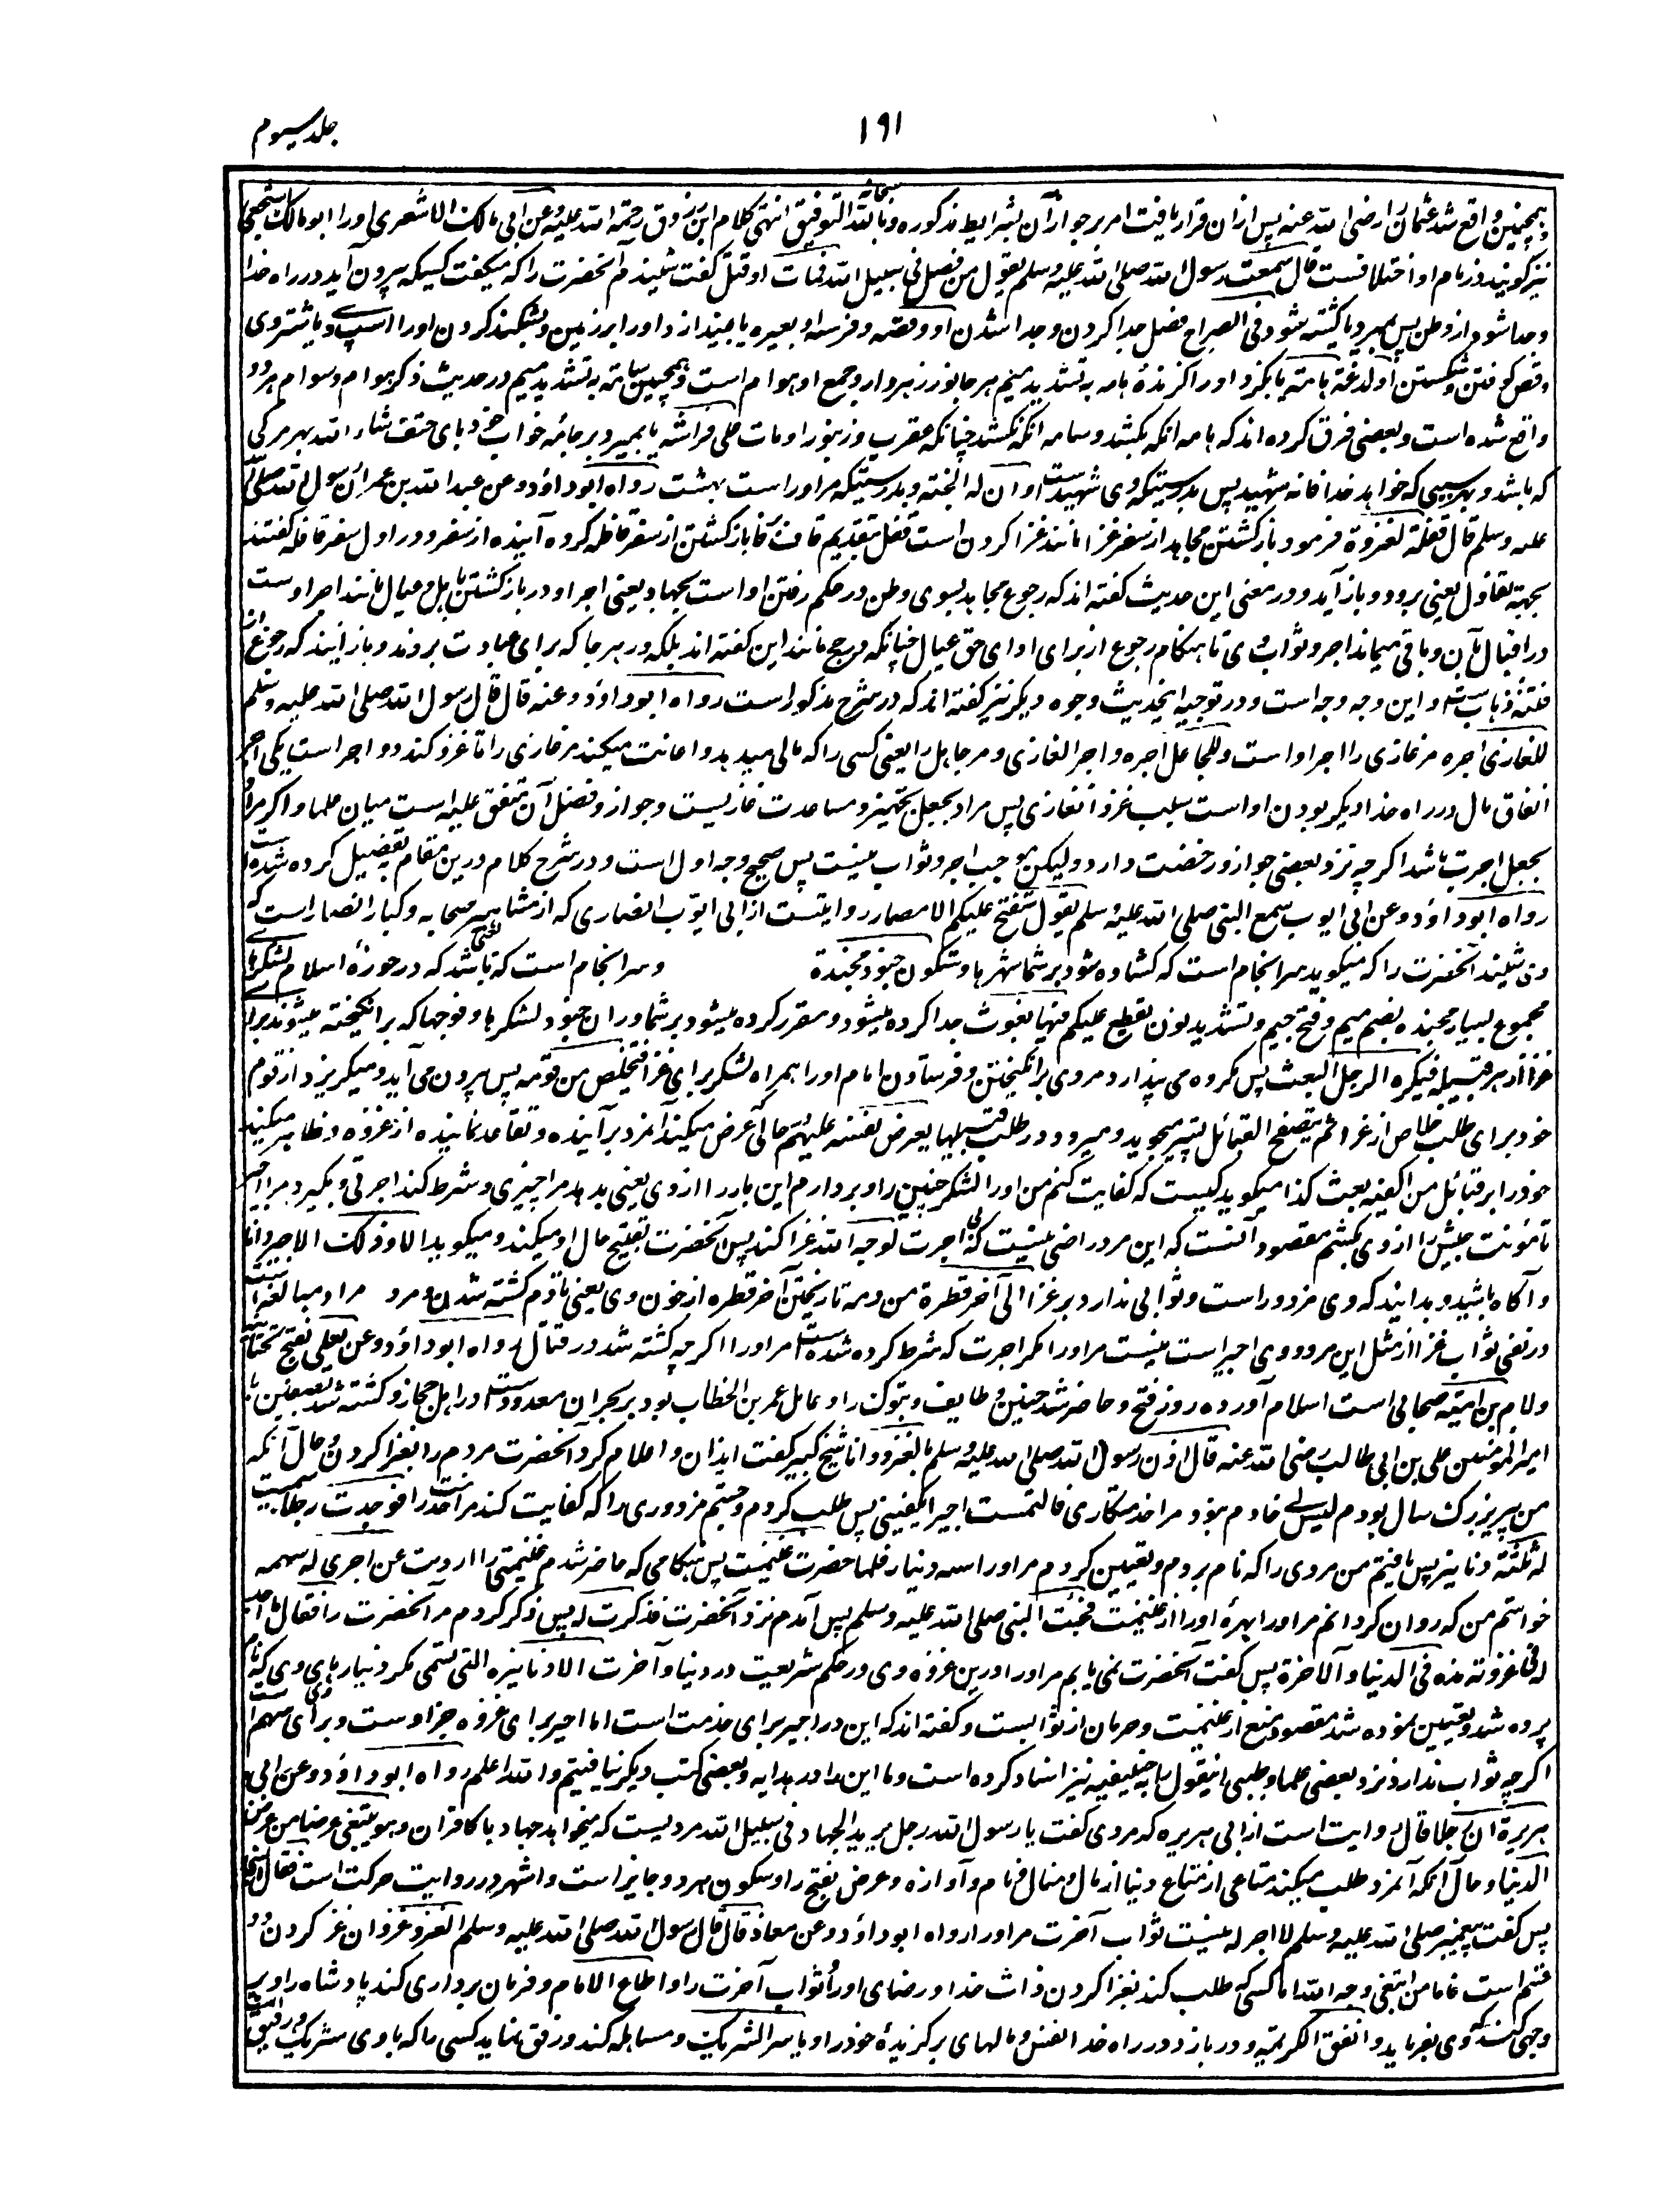 جلد سیوم
۱۹۱
همچنین واقع شد عثمان را رضی الله عنه پس ازان قرار یافت امر بر جواز آن بشرایط مذکوره و بالله سبحانه التوفیق انتهی کلام ابن زروق رحمة الله علیه وعن ابی مالک الاشعری اورا ابو مالک اشجعی
نیز گویند در نام او اختلافست قال سمعت رسول الله صلی الله علیه وسلم یقول من فصل فی سبیل الله فمات او قتل گفت شنیدم آنحضرت را که میگفت کسیکه بیرون آید در راه خدا
وجدا شود از وطن پس بمیرد یا کشته شود فی الصراح فصل جدا کردن وجدا شدن او وقصه فرسه او بعیره یا بیندازد اورا بر زمین و بشکند گردن اورا اسپ وی یا شتر وی
وقص کوفتن و شکستن او لدغته هامة یا بگزد اورا گزنده هامه به تشدید میم هر جانور زهردار وجمع او هوام است و همچنین سامه به تشدید میم در حدیث ذکر هوام و سوام هر دو
واقع شده است وبعضی فرق کرده اند که هامه آنکه بکشد وسامه آنکه نکشد چنانکه عقرب وزنبور او مات علی فراشه یا بمیرد بر جامه خواب خود بای حتف شاء الله بهر مرگی
که باشد وبهر سببی که خواهد خدا فانه شهید پس بدرستیکه وی شهیدست وان له الجنة وبدرستیکه مر اوراست بهشت رواه ابو داؤد وعن عبدالله بن عمر ان رسول الله صلی الله
علیه وسلم قال قفلة کغزوة فرمود باز گشتن مجاهد از سفر غزا مانند غزا کردن است قفل بتقدیم قاف بر فا باز گشتن از سفر قافله گروه آینده از سفر ودر اول سفر قافله گفتند
بجهته تفاؤل یعنی برود وباز آید ودر معنی این حدیث گفته اند که رجوع مجاهد بسوی وطن در حکم رفتن او است بجهاد یعنی اجر او در باز گشتن باهل وعیال مانند اجر اوست
در اقبال بآن وباقی میماند اجر وثواب وی تا هنگام رجوع از برای ادای حق عیال چنانکه در حج مانند این گفته اند بلکه در هر جا که برای عبادت بروند وباز آیند که رجوع از
تتمه ذهاب ست واین وجه وجه است ودر توجیه این حدیث وجوه دیگر نیز گفته اند که در شرح مذکور است رواه ابو داؤد وعنه قال قال رسول الله صلی الله علیه وسلم
للغازی اجره مر غازی را اجر او است وللجاعل اجره واجر الغازی ومر جاعل را یعنی کسی را که مالی میدهد واعانت میکند مر غازی را تا غزو کند دو اجر است یکی اجر
انفاق مال در راه خدا دیگر بودن او است سبب غزو آن غازی پس مراد بجعل تجهیز ومساعدت غازیست وجواز وفضل آن متفق علیه است میان علما واگر مراد
بجعل اجرت باشد اگرچه نزد بعضی جواز ورخصت دارد ولیکن موجب اجر وثواب نیست پس صحیح وجه اول است ودر شرح کلام درین مقام بتفصیل کرده شده است
رواه ابو داؤد وعن ابی ایوب سمع النبی صلی الله علیه وسلم یقول ستفتح علیکم الامصار روایتست از ابی ایوب انصاری که از مشاهیر صحابه وکبار انصار است که
وی شنید آنحضرت را که میگوید سرانجام است که کشاده شود بر شما شهرها وستکون جنود مجندة وسرانجام است که باشد که در حوزه اسلام لشکرهای
مجموع بسیار مجنده بضم میم وفتح جیم وتشدید نون یقطع علیکم فیها بعوث جدا کرده میشود ومقرر کرده میشود بر شما دران جنود لشکرها وفوجها که برانگیخته میشوند برای
غزا از هر قبیله فیکره الرجل البعث پس مکروه می پندارد مردی برانگیختن وفرستادن امام اورا همراه لشکر برای غزا فیتخلص من قومه پس بیرون می آید ومیگریزد از قوم
خود برای طلب خلاص از غزا ثم یتصفح القبائل پستر میجوید ومیرود در طلب قبیلها یعرض نفسه علیهم حالیکه عرض میکند آنمرد برآینده وتقاعد نماینده از غزوه وظاهر میکند
خود را بر قبائل من اکفیه بعث کذا میگوید کیست که کفایت کنم من اورا لشکر چنین را وبردارم این بار را ازوی یعنی بدهد مرا چیزی وشرط کند اجرتی وبگیرد مرا اجیر
تا مؤنت جیش را ازوی بکشم مقصود آنست که این مرد راضی نیست که بی اجرت لوجه الله غزا کند پس آنحضرت تقبیح حال او میکند ومیگوید الا وذلک الاجیر دانا
وآگاه باشید وبدانید که وی مزدور است وثوابی ندارد بر غزا الی آخر قطرة من دمه تا ریختن آخر قطره از خون وی یعنی تا دم کشته شدن ومرد مراد مبالغه است
در نفی ثواب غزا از مثل این مرد ووی اجیر است نیست مر اورا مگر اجرت که شرط کرده شده است مر اورا اگرچه کشته شد در قتال رواه ابو داؤد وعن یعلی بفتح تحتانیه
ولام بن امیه صحابی است اسلام آورده روز فتح وحاضر شد حنین وطایف وتبوک را وعامل عمر بن الخطاب بود بر نجران معدودست در اهل حجاز وکشته شد بصفین با
امیر المؤمنین علی بن ابی طالب رضی الله عنه قال اذن رسول الله صلی الله علیه وسلم بالغزو وانا شیخ کبیر گفت ایذان واعلام کرد آنحضرت مردم را بغزا کردن وحال آنکه
من پیر بزرگ سال بودم لیس لی خادم نبود مرا خدمتگاری فالتمست اجیرا یکفینی پس طلب کردم وجستم مزدوری را که کفایت کند مرا خدمت را فوجدت رجلا سمیت
له ثلثة دنانیر پس یافتم من مردی را که نام بردم وتعیین کردم مر اورا سه دینار فلما حضرت غنیمة پس هنگامی که حاضر شدم غنیمتی را اردت عن اجری له سهمه
خواستم من که روان گردانم مر اورا بهره اورا از غنیمت فجئت النبی صلی الله علیه وسلم پس آمدم نزد آنحضرت فذکرت له پس ذکر کردم مر آنحضرت را فقال ما اجد
له فی غزوته هذه فی الدنیا والآخرة پس گفت آنحضرت نمی یابم مر اورا درین غزوه وی در حکم شریعت در دنیا وآخرت الا دنانیره التی تسمی مگر دینارهای وی که نام
برده شد وتعیین نموده شد مقصود منع از غنیمت وحرمان از ثوابست وگفته اند که این در اجیر برای خدمت است اما اجیر برای غزوه جز اوست وبرای وی سهم است
اگرچه ثواب ندارد نزد بعضی علما وطیبی اینقول را به حنفیه نیز اسناد کرده است وما این را در هدایه وبعضی کتب دیگر نیافتیم والله اعلم رواه ابو داؤد وعن ابی
هریرة ان رجلا قال روایت است از ابی هریره که مردی گفت یا رسول الله رجل یرید الجهاد فی سبیل الله مردیست که میخواهد جهاد با کافران وهو یبتغی عرضا من عرض
الدنیا وحال آنکه آنمرد طلب میکند متاعی از متاع دنیا از مال ومنال ونام وآوازه وعرض بفتح را وسکون هر دو جایز است واشهر در روایت حرکت است فقال النبی
پس گفت پیغمبر صلی الله علیه وسلم لا اجر له نیست ثواب آخرت مر اورا رواه ابو داؤد وعن معاذ قال قال رسول الله صلی الله علیه وسلم الغزو غزوان غزا کردن دو
قسم است فاما من ابتغی وجه الله اما کسی که طلب کند بغزا کردن ذات خدا ورضای اورا وثواب آخرت را واطاع الامام وفرمان برداری کند پادشاه را وبر
وجهی کند که وی بفرماید وانفق الکریمة ودر بازد در راه خدا نفس ومالهای برگزیده خود را ویاسر الشریک ومساهله کند ورفق نماید کسی را که با وی شریک ورفیق است